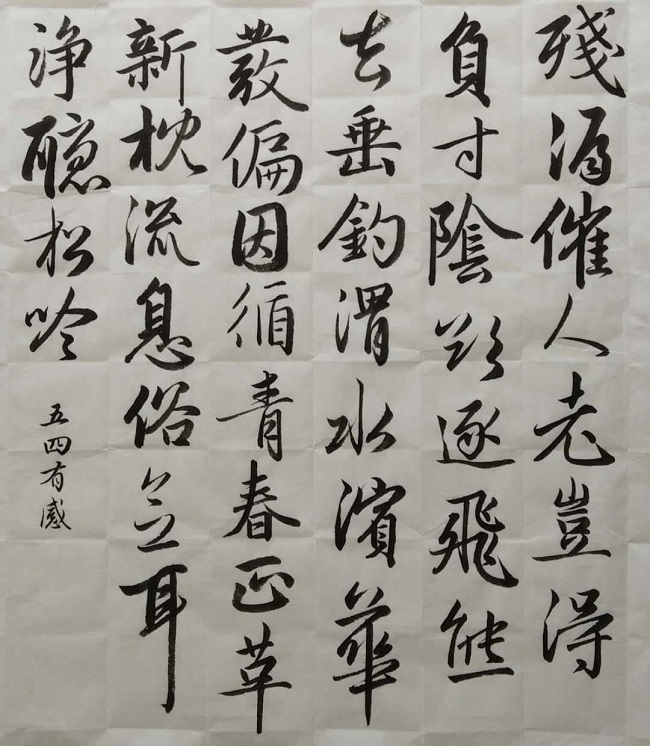 殘漏催人老豈得
負寸陰欲逐飛熊
去垂釣渭水濱華
發偏因循青春正草
新枕流息俗念耳
淨聽松吟
五四有感